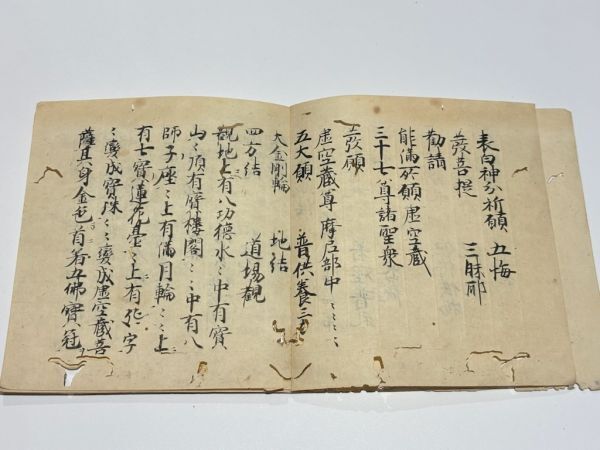 表白神分祈願　五悔
發菩提　三昧耶
勸請
能滿所願虛空藏
三十七尊諸聖衆
發願
虛空藏尊摩尼部中〻〻〻
五大願　普供養三〻
大金剛輪　地結
四方結　道場觀
觀地上有八功德水〻中有寶
山〻頂有寶樓閣〻〻中有八
師子座〻上有滿月輪〻〻上
有七寶蓮花臺〻上有字
〻變成寶珠〻〻變成虛空藏菩
薩其身金色首著五佛寶冠